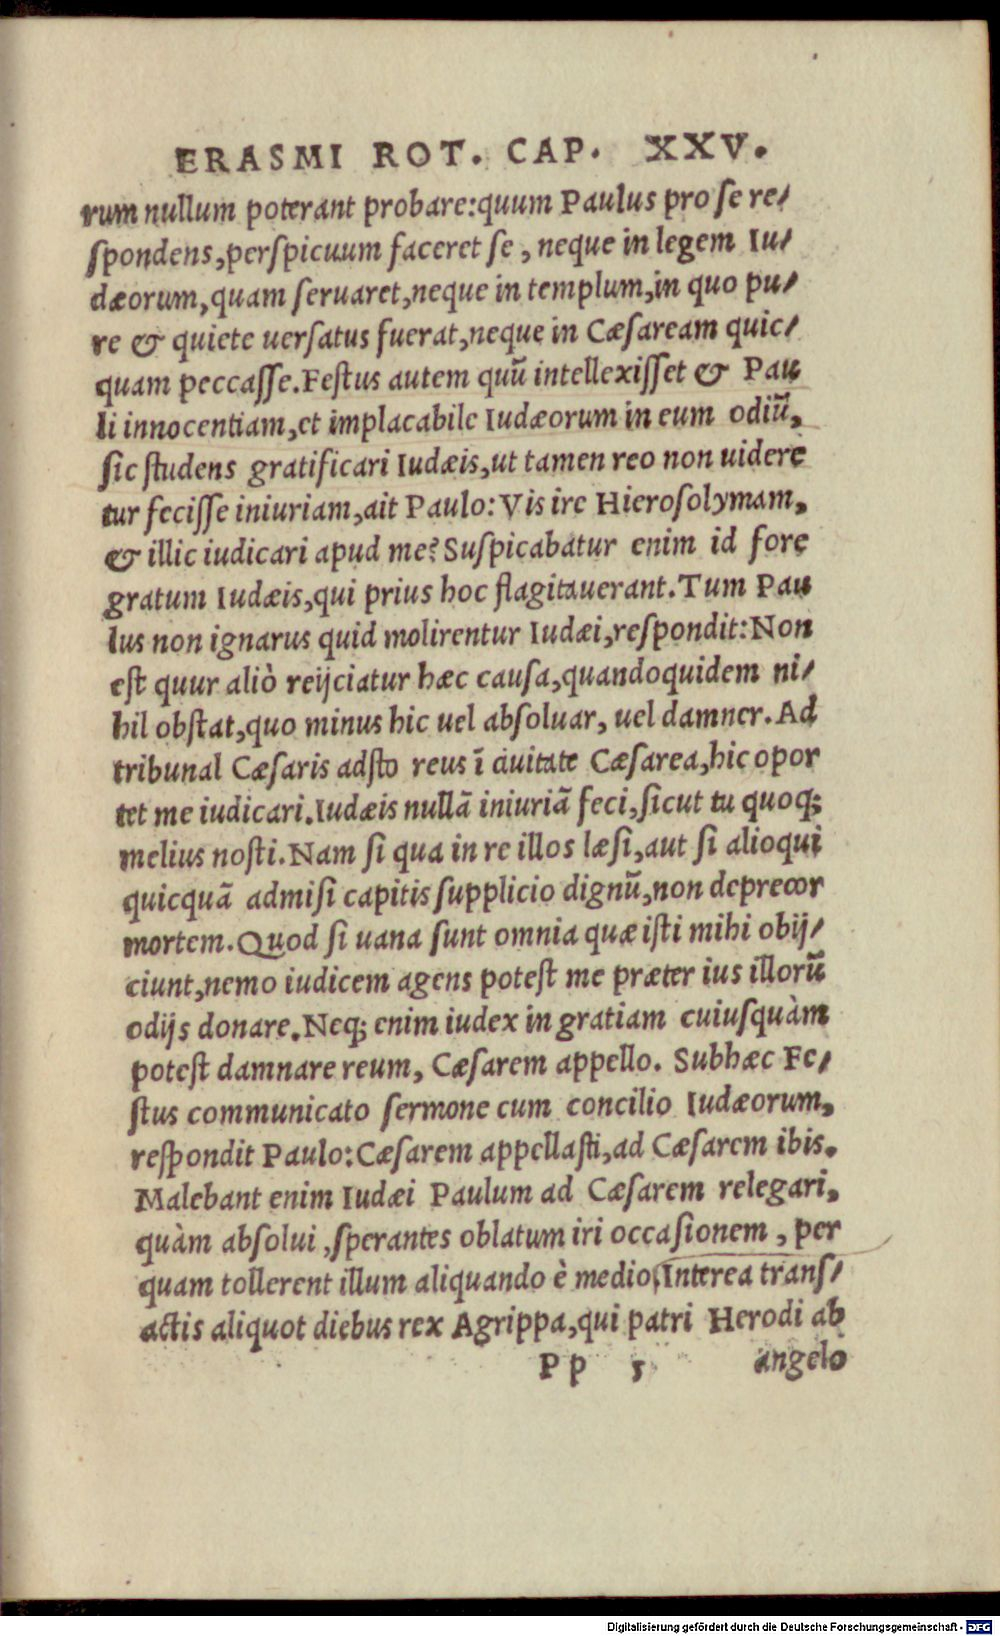 ERASMI ROT. CAP. XXV.
rum nullum poterant probare:quum Paulus pro se re/
spondens,perspicuum faceret se, neque in legem Iu/
dæorum,quam seruaret,neque in templum,in quo pu/
re & quiete uersatus fuerat,neque in Cæsaream quic/
quam peccasse.Festus autem quū intellexisset & Pau
li innocentiam,et implacabile Iudæorum in eum odiū,
sic studens gratificari Iudæis,ut tamen reo non uidere
tur fecisse iniuriam,ait Paulo:Vis ire Hierosolymam,
& illic iudicari apud me? Suspicabatur enim id fore
gratum Iudæis,qui prius hoc flagitauerant.Tum Pau
lus non ignarus quid molirentur Iudæi,respondit:Non
est quur aliò reijciatur hæc causa,quandoquidem ni/
hil obstat,quo minus hic uel absoluar, uel damner.Ad
tribunal Cæsaris adsto reus ī ciuitate Cæsarea,hic opor
tet me iudicari.Iudæis nullā iniuriā feci,sicut tu quoq;
melius nosti.Nam si qua in re illos læsi,aut si alioqui
quicquā admisi capitis supplicio dignū,non deprecor
mortem.Quod si uana sunt omnia quæ isti mihi obij/
ciunt,nemo iudicem agens potest me præter ius illorū
odijs donare.Neq; enim iudex in gratiam cuiusquàm
potest damnare reum, Cæsarem appello. Subhæc Fe/
stus communicato sermone cum concilio Iudæorum,
respondit Paulo:Cæsarem appellasti,ad Cæsarem ibis.
Malebant enim Iudæi Paulum ad Cæsarem relegari,
quàm absolui ,sperantes oblatum iri occasionem , per
quam tollerent illum aliquando è medio.Interea trans/
actis aliquot diebus rex Agrippa,qui patri Herodi ab
Pp 5 angelo
Digitalisierung gefördert durch die Deutsche Forschungsgemeinschaft - DFG